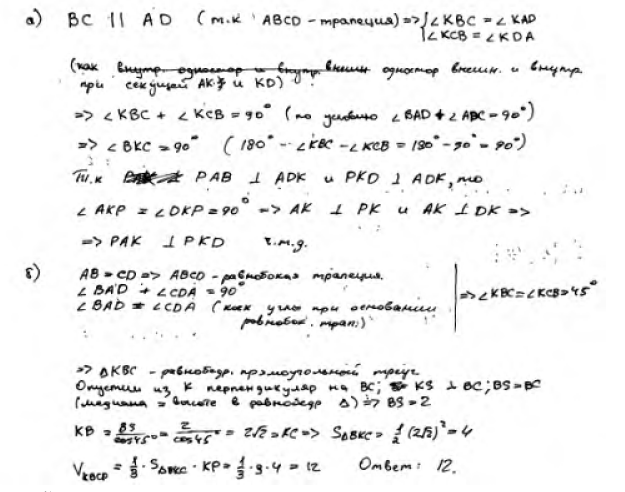 а) BC || AD (т.к ABCD - трапеция) => { ∠KBC = ∠KAD
∠KCB = ∠KDA
(как внутр. одностор и внутр. внешн одностор внешн. и внутр.
при секущей AK и KD)
=> ∠KBC + ∠KCB = 90° (по условию ∠BAD + ∠ADC = 90°)
=> ∠BKC = 90° (180° - ∠KBC - ∠KCB = 180° - 90° = 90°)
Т.к PAB ⊥ ADK и PKD ⊥ ADK, то
∠AKP = ∠DKP = 90° => AK ⊥ PK и AK ⊥ DK =>
=> PAK ⊥ PKD ч.т.д.
б) AB = CD => ABCD - равнобокая трапеция.
∠BAD + ∠CDA = 90°
∠BAD = ∠CDA (как углы при основании
равнобок. трап.)
=> ∠KBC = ∠KCB = 45°
=> ΔKBC - равнобедр. прямоугольный треуг.
Опустим из K перпендикуляр на BC; KS ⊥ BC; BS = BC
(медиана = высоте в равнобедр Δ) => BS = 2
KB = BS/cos45° = 2/cos45° = 2√2 = KC => S_ΔBKC = 1/2 (2√2)² = 4
V_KBCP = 1/3 · S_ΔBKC · KP = 1/3 · 9 · 4 = 12 Ответ: 12.